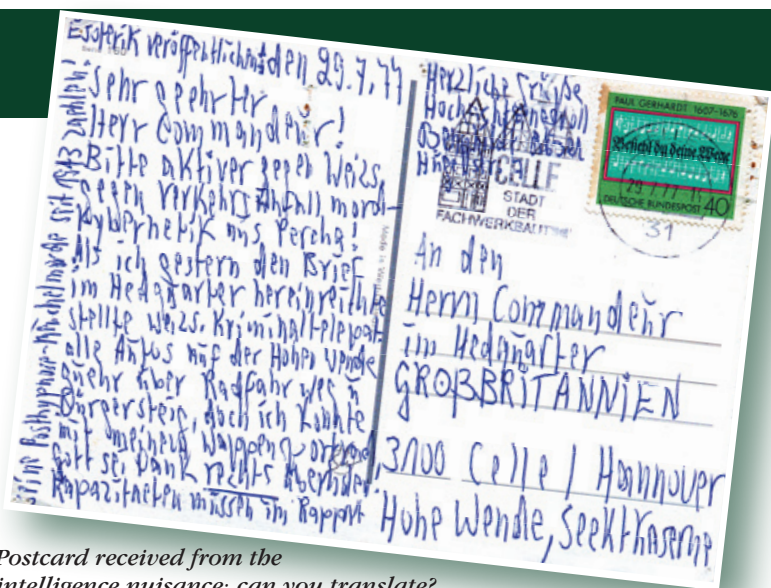 Esoterik veröffentlichen den 29.7.77
Sehr geehrter
Herr Commandeur!
Bitte aktiver gegen Weizs.
gegen Verkehrs Unfall mord-
Kybernetik aus Percha!
Als ich gestern den Brief
im Hedquarter hereinreichte
stellte Weizs. Kriminaltelepat.
alle Autos auf der Hohen Wende
quehr über Radfahr weg u
Bürgersteig, doch ich konnte
mit meinem
Gott sei Dank rechts
müssen im Rapport
seit 1943 zahlen
Made in West
Herzliche Grüße
CELLE
STADT
DER
FACHWERKBAUTEN
PAUL GERHARDT 1607-1676
Befiehl du deine Wege
DEUTSCHE BUNDESPOST 40
29.7.77
31
An den
Herrn Commandeur
im Hedquarter
GROßBRITANNIEN
3100 Celle / Hannover
Hohe Wende, Seektkaserne
Postcard received from the
intelligence nuisance: can you translate?